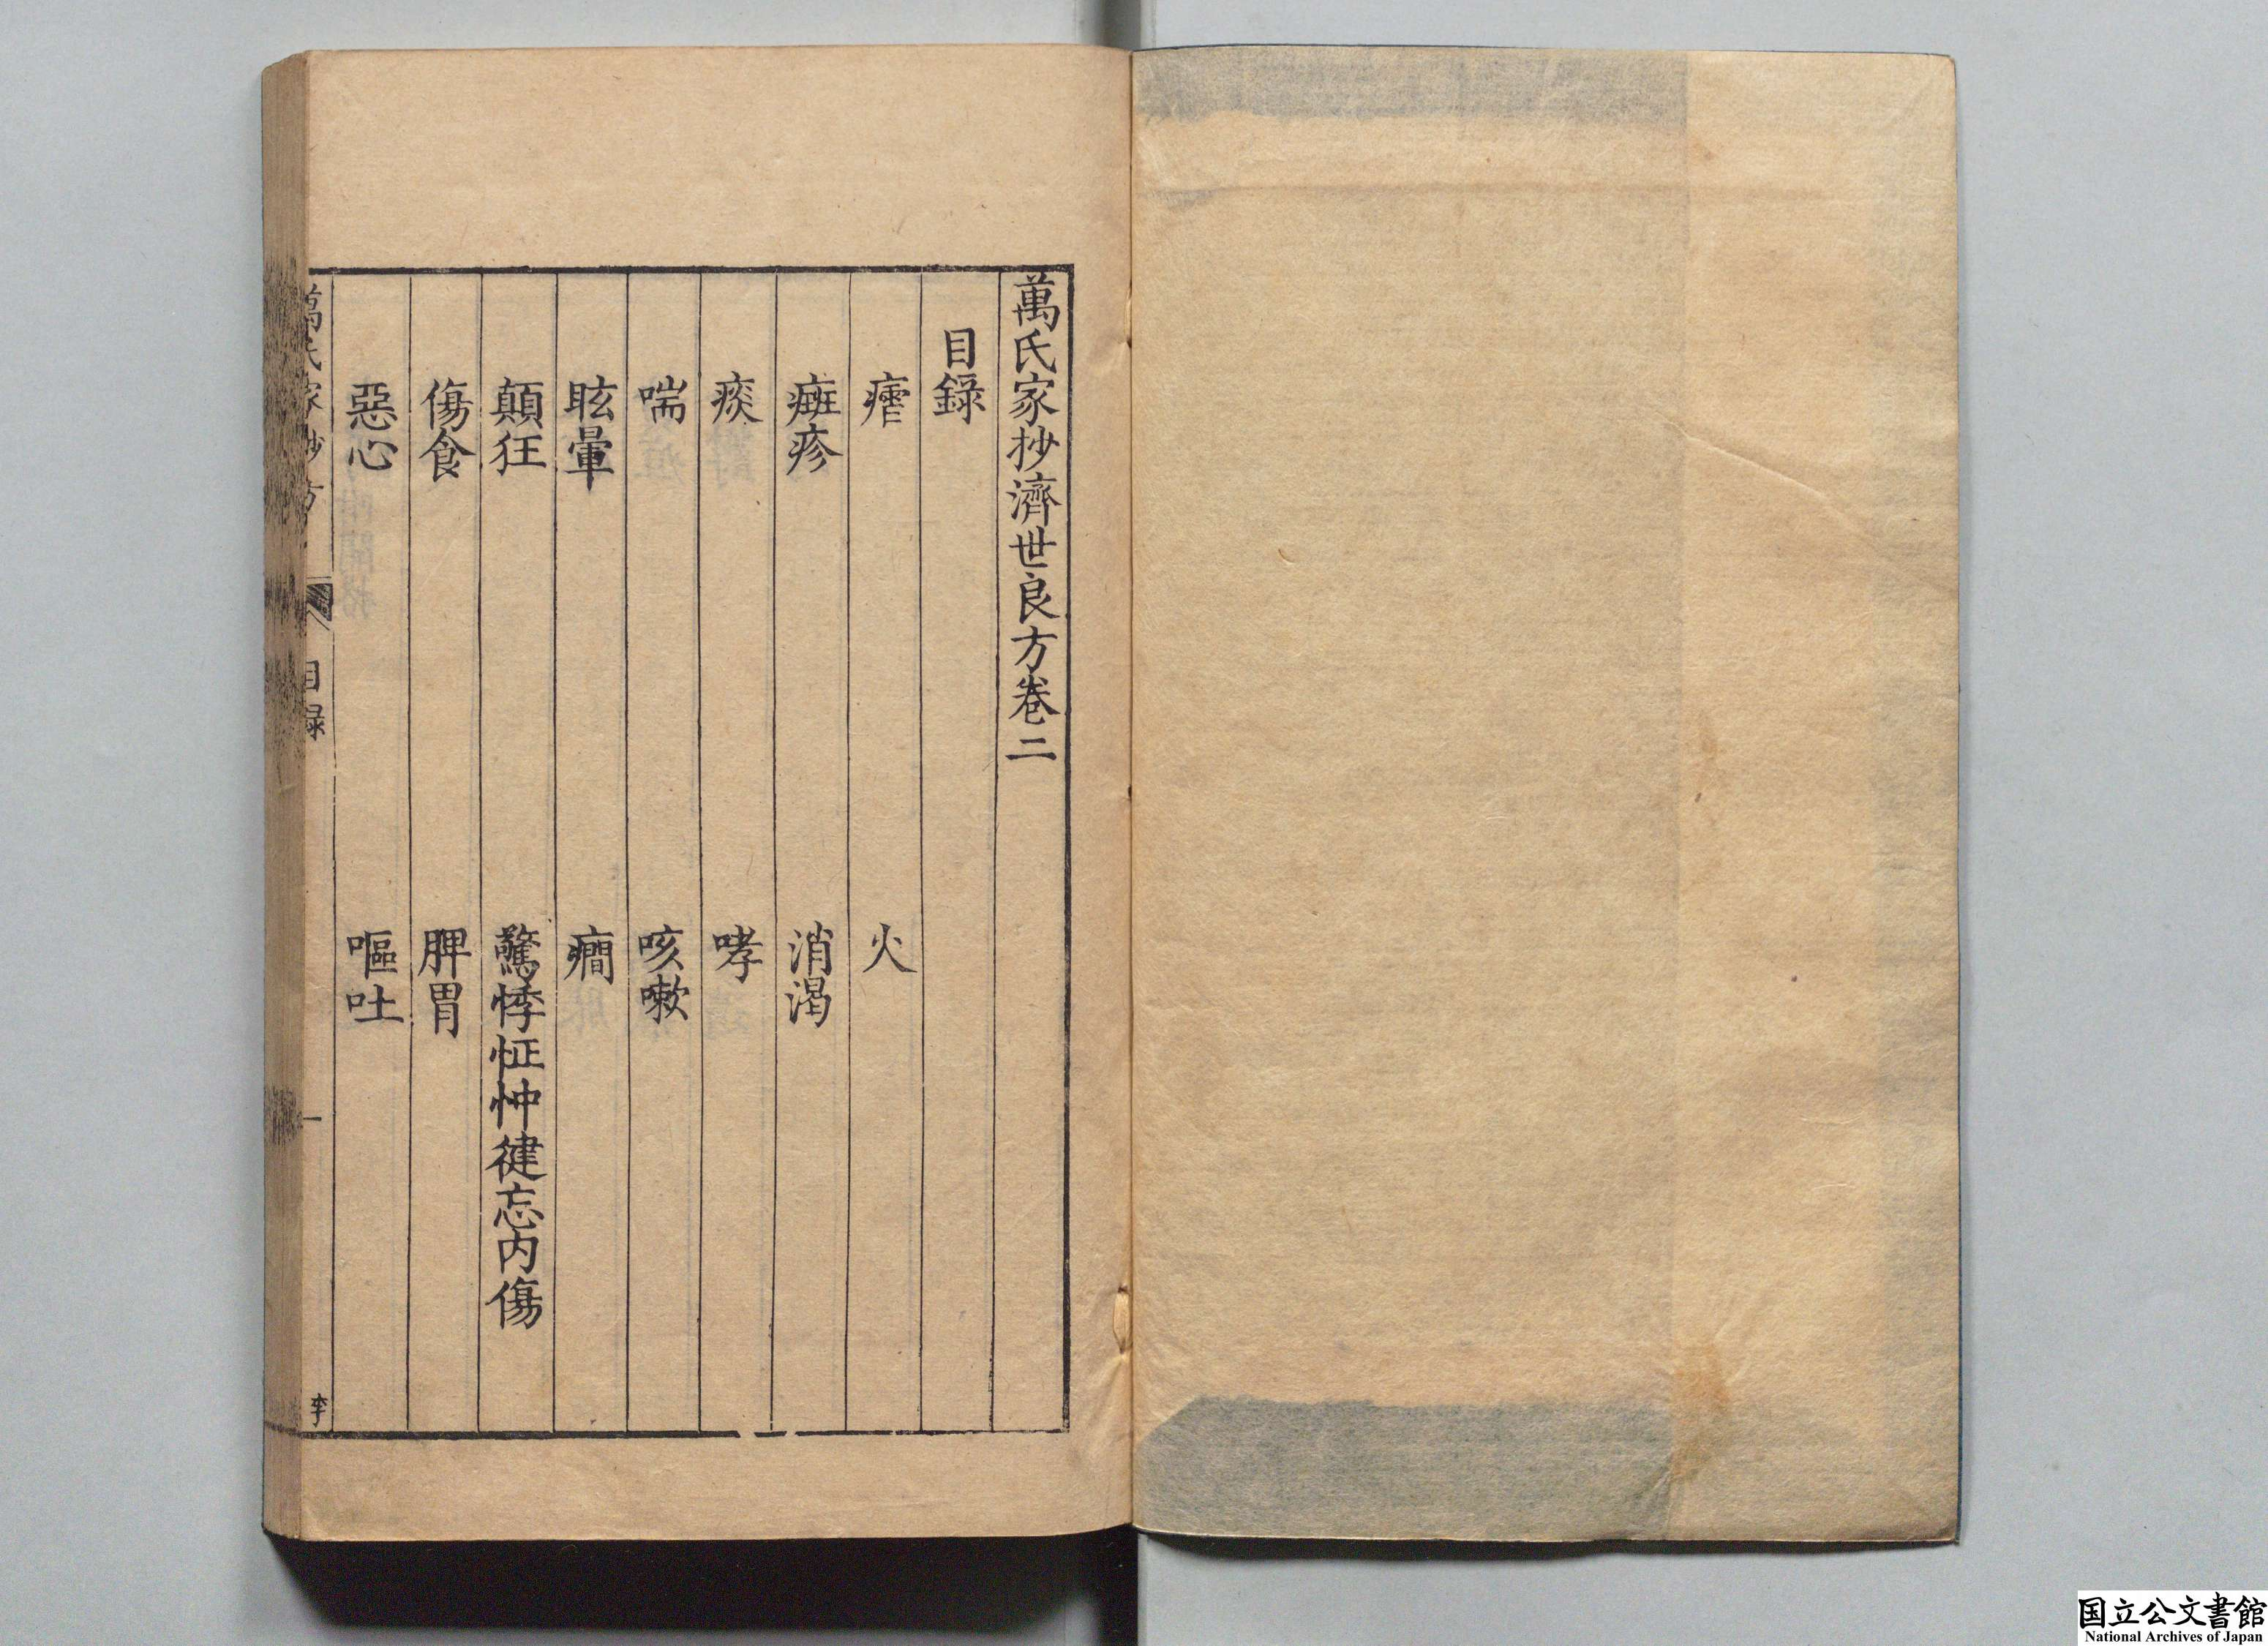 萬氏家抄濟世良方卷二
目錄
瘧　火
癍疹　消渴
痰　哮
喘　咳嗽
眩暈　癇
顛狂　驚悸怔忡徤忘內傷
傷食　脾胃
惡心　嘔吐
萬氏家抄方　目錄　一　李
国立公文書館
National Archives of Japan